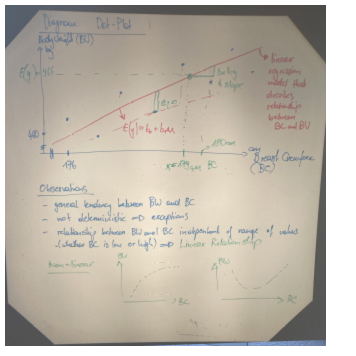 Diagram: Dot-Plot
Body Weight (BW)
kg
E(y)
Linear
regression
model that
describes
relationship
between
BC and BW
E(y) = b₀ + b₁x
176
BC
cm
Breast Circumference
(BC)
Observations
- general tendency between BW and BC
- not deterministic ⇒ exceptions
- relationship between BW and BC independent of range of values
(whether BC is low or high) ⇒ Linear Relationship
Non-linear
BW
BC
BW
BC